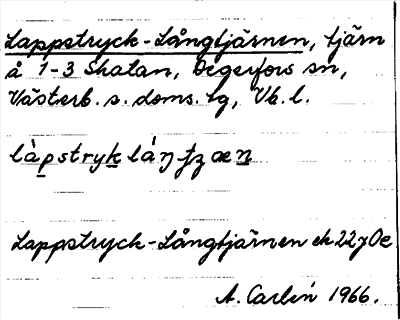 Lappstryck-Långtjärnen, tjärn
å 1-3 Skatan, Degerfors sn,
Västerb. s. doms. tg, Vb. l.
làpstryk láŋ ꞔʒ æn
Lappstryck-Långtjärnen ek 22 y Oe
A. Carlén 1966.